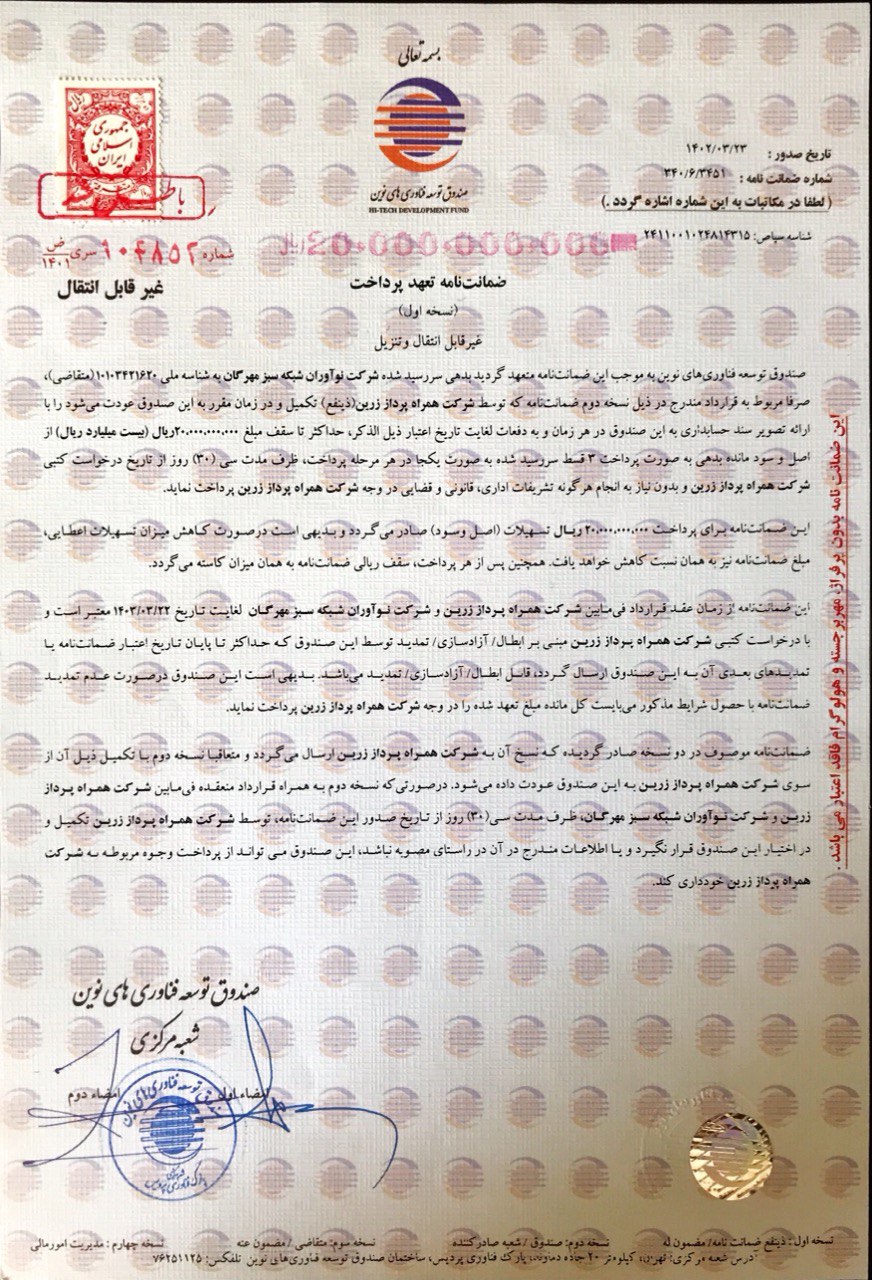 بسمه تعالی
جمهوری
اسلامی
ایران
صندوق توسعه فناوری های نوین
HI-TECH DEVELOPMENT FUND
تاریخ صدور : ۱۴۰۲/۰۳/۲۳
شماره ضمانت نامه : ۳۴۰/۶/۳۴۵۱
( لطفا در مکاتبات به این شماره اشاره گردد .)
شناسه سپاص: ۲۴۱۱۰۰۱۰۲۴۸۱۴۳۱۵
20,000,000,000 ریال
شماره ۹۰۴۸۵۲ سری ض ۱۴۰۱
غیر قابل انتقال
ضمانت‌نامه تعهد پرداخت
(نسخه اول)
غیرقابل انتقال و تنزیل
صندوق توسعه فناوری‌های نوین به موجب این ضمانت‌نامه متعهد گردید بدهی سررسید شده شرکت نوآوران شبکه سبز مهرگان به شناسه ملی ۱۰۱۰۳۴۲۱۶۲۰(متقاضی)،
صرفا مربوط به قرارداد مندرج در ذیل نسخه دوم ضمانت‌نامه که توسط شرکت همراه پرداز زرین(ذینفع) تکمیل و در زمان مقرر به این صندوق عودت می‌شود را با
ارائه تصویر سند حسابداری به این صندوق در هر زمان و به دفعات لغایت تاریخ اعتبار ذیل الذکر، حداکثر تا سقف مبلغ ۲۰.۰۰۰.۰۰۰.۰۰۰ریال (بیست میلیارد ریال) از
اصل و سود مانده بدهی به صورت پرداخت ۳ قسط سررسید شده به صورت یکجا در هر مرحله پرداخت، ظرف مدت سی (۳۰) روز از تاریخ درخواست کتبی
شرکت همراه پرداز زرین و بدون نیاز به انجام هرگونه تشریفات اداری، قانونی و قضایی در وجه شرکت همراه پرداز زرین پرداخت نماید.
این ضمانت‌نامه برای پرداخت ۲۰.۰۰۰.۰۰۰.۰۰۰ ریال تسهیلات (اصل وسود) صادر می‌گردد و بدیهی است درصورت کاهش میزان تسهیلات اعطایی،
مبلغ ضمانت‌نامه نیز به همان نسبت کاهش خواهد یافت. همچنین پس از هر پرداخت، سقف ریالی ضمانت‌نامه به همان میزان کاسته می‌گردد.
این ضمانت‌نامه از زمان عقد قرارداد فی‌مابین شرکت همراه پرداز زرین و شرکت نوآوران شبکه سبز مهرگان لغایت تاریخ ۱۴۰۳/۰۳/۲۲ معتبر است و
با درخواست کتبی شرکت همراه پرداز زرین مبنی بر ابطال/ آزادسازی/ تمدید توسط این صندوق که حداکثر تا پایان تاریخ اعتبار ضمانت‌نامه یا
تمدیدهای بعدی آن به این صندوق ارسال گردد، قابل ابطال/ آزادسازی/ تمدید می‌باشد. بدیهی است این صندوق درصورت عدم تمدید
ضمانت‌نامه با حصول شرایط مذکور می‌بایست کل مانده مبلغ تعهد شده را در وجه شرکت همراه پرداز زرین پرداخت نماید.
ضمانت‌نامه موصوف در دو نسخه صادر گردیده که نسخ آن به شرکت همراه پرداز زرین ارسال می‌گردد و متعاقبا نسخه دوم با تکمیل ذیل آن از
سوی شرکت همراه پرداز زرین به این صندوق عودت داده می‌شود. درصورتی‌که نسخه دوم به همراه قرارداد منعقده فی‌مابین شرکت همراه پرداز
زرین و شرکت نوآوران شبکه سبز مهرگان، ظرف مدت سی(۳۰) روز از تاریخ صدور این ضمانت‌نامه، توسط شرکت همراه پرداز زرین تکمیل و
در اختیار این صندوق قرار نگیرد و یا اطلاعات مندرج در آن در راستای مصوبه نباشد، این صندوق می تواند از پرداخت وجوه مربوطه به شرکت
همراه پرداز زرین خودداری کند.
این ضمانت نامه بدون پرفراژ، مهر برجسته و هولوگرام فاقد اعتبار می باشد .
صندوق توسعه فناوری های نوین
شعبه مرکزی
امضاء اول
امضاء دوم
نسخه اول : ذینفع ضمانت نامه/ مضمون له
نسخه دوم: صندوق / شعبه صادرکننده
نسخه سوم: متقاضی / مضمون عنه
نسخه چهارم : مدیریت امورمالی
آدرس شعبه مرکزی: تهران، کیلومتر ۲۰ جاده دماوند، پارک فناوری پردیس، ساختمان صندوق توسعه فناوری‌های نوین تلفکس: ۷۶۲۵۱۱۲۵